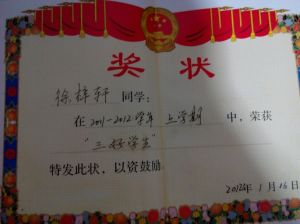 奖状
徐梓轩 同学：
在 2011-2012学年 上学期 中，荣获
"三好学生"
特发此状，以资鼓励。
2012年1月16日